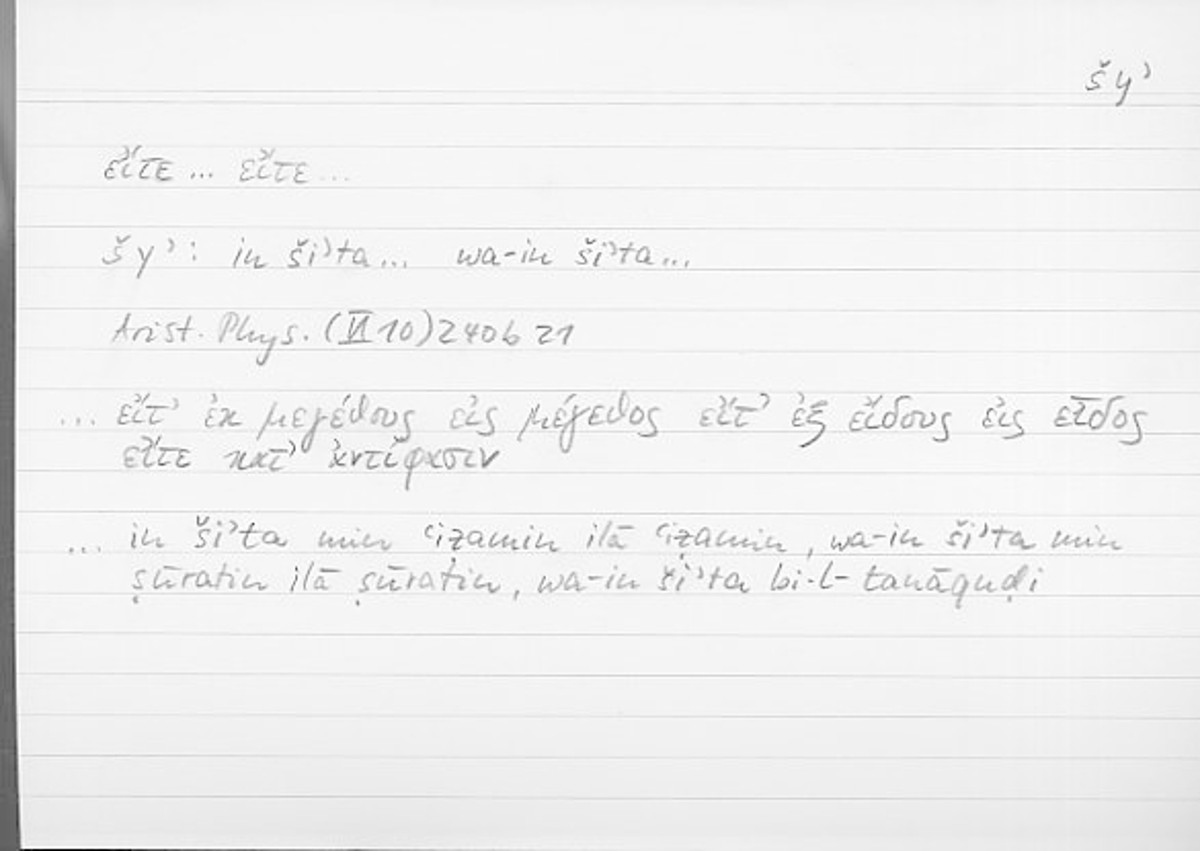 šyʾ
εἴτε ... εἴτε ...
šyʾ: in šiʾta ... wa-in šiʾta ...
Arist. Phys. (VI 10) 240b 21
... εἴτ᾽ ἐκ μεγέθους εἰς μέγεθος εἴτ᾽ ἐξ εἴδους εἰς εἶδος
εἴτε κατ᾽ ἀντίφασιν
... in šiʾta min ʿiẓamin ilā ʿiẓamin, wa-in šiʾta min
ṣūratin ilā ṣūratin, wa-in šiʾta bi-l-tanāquḍi